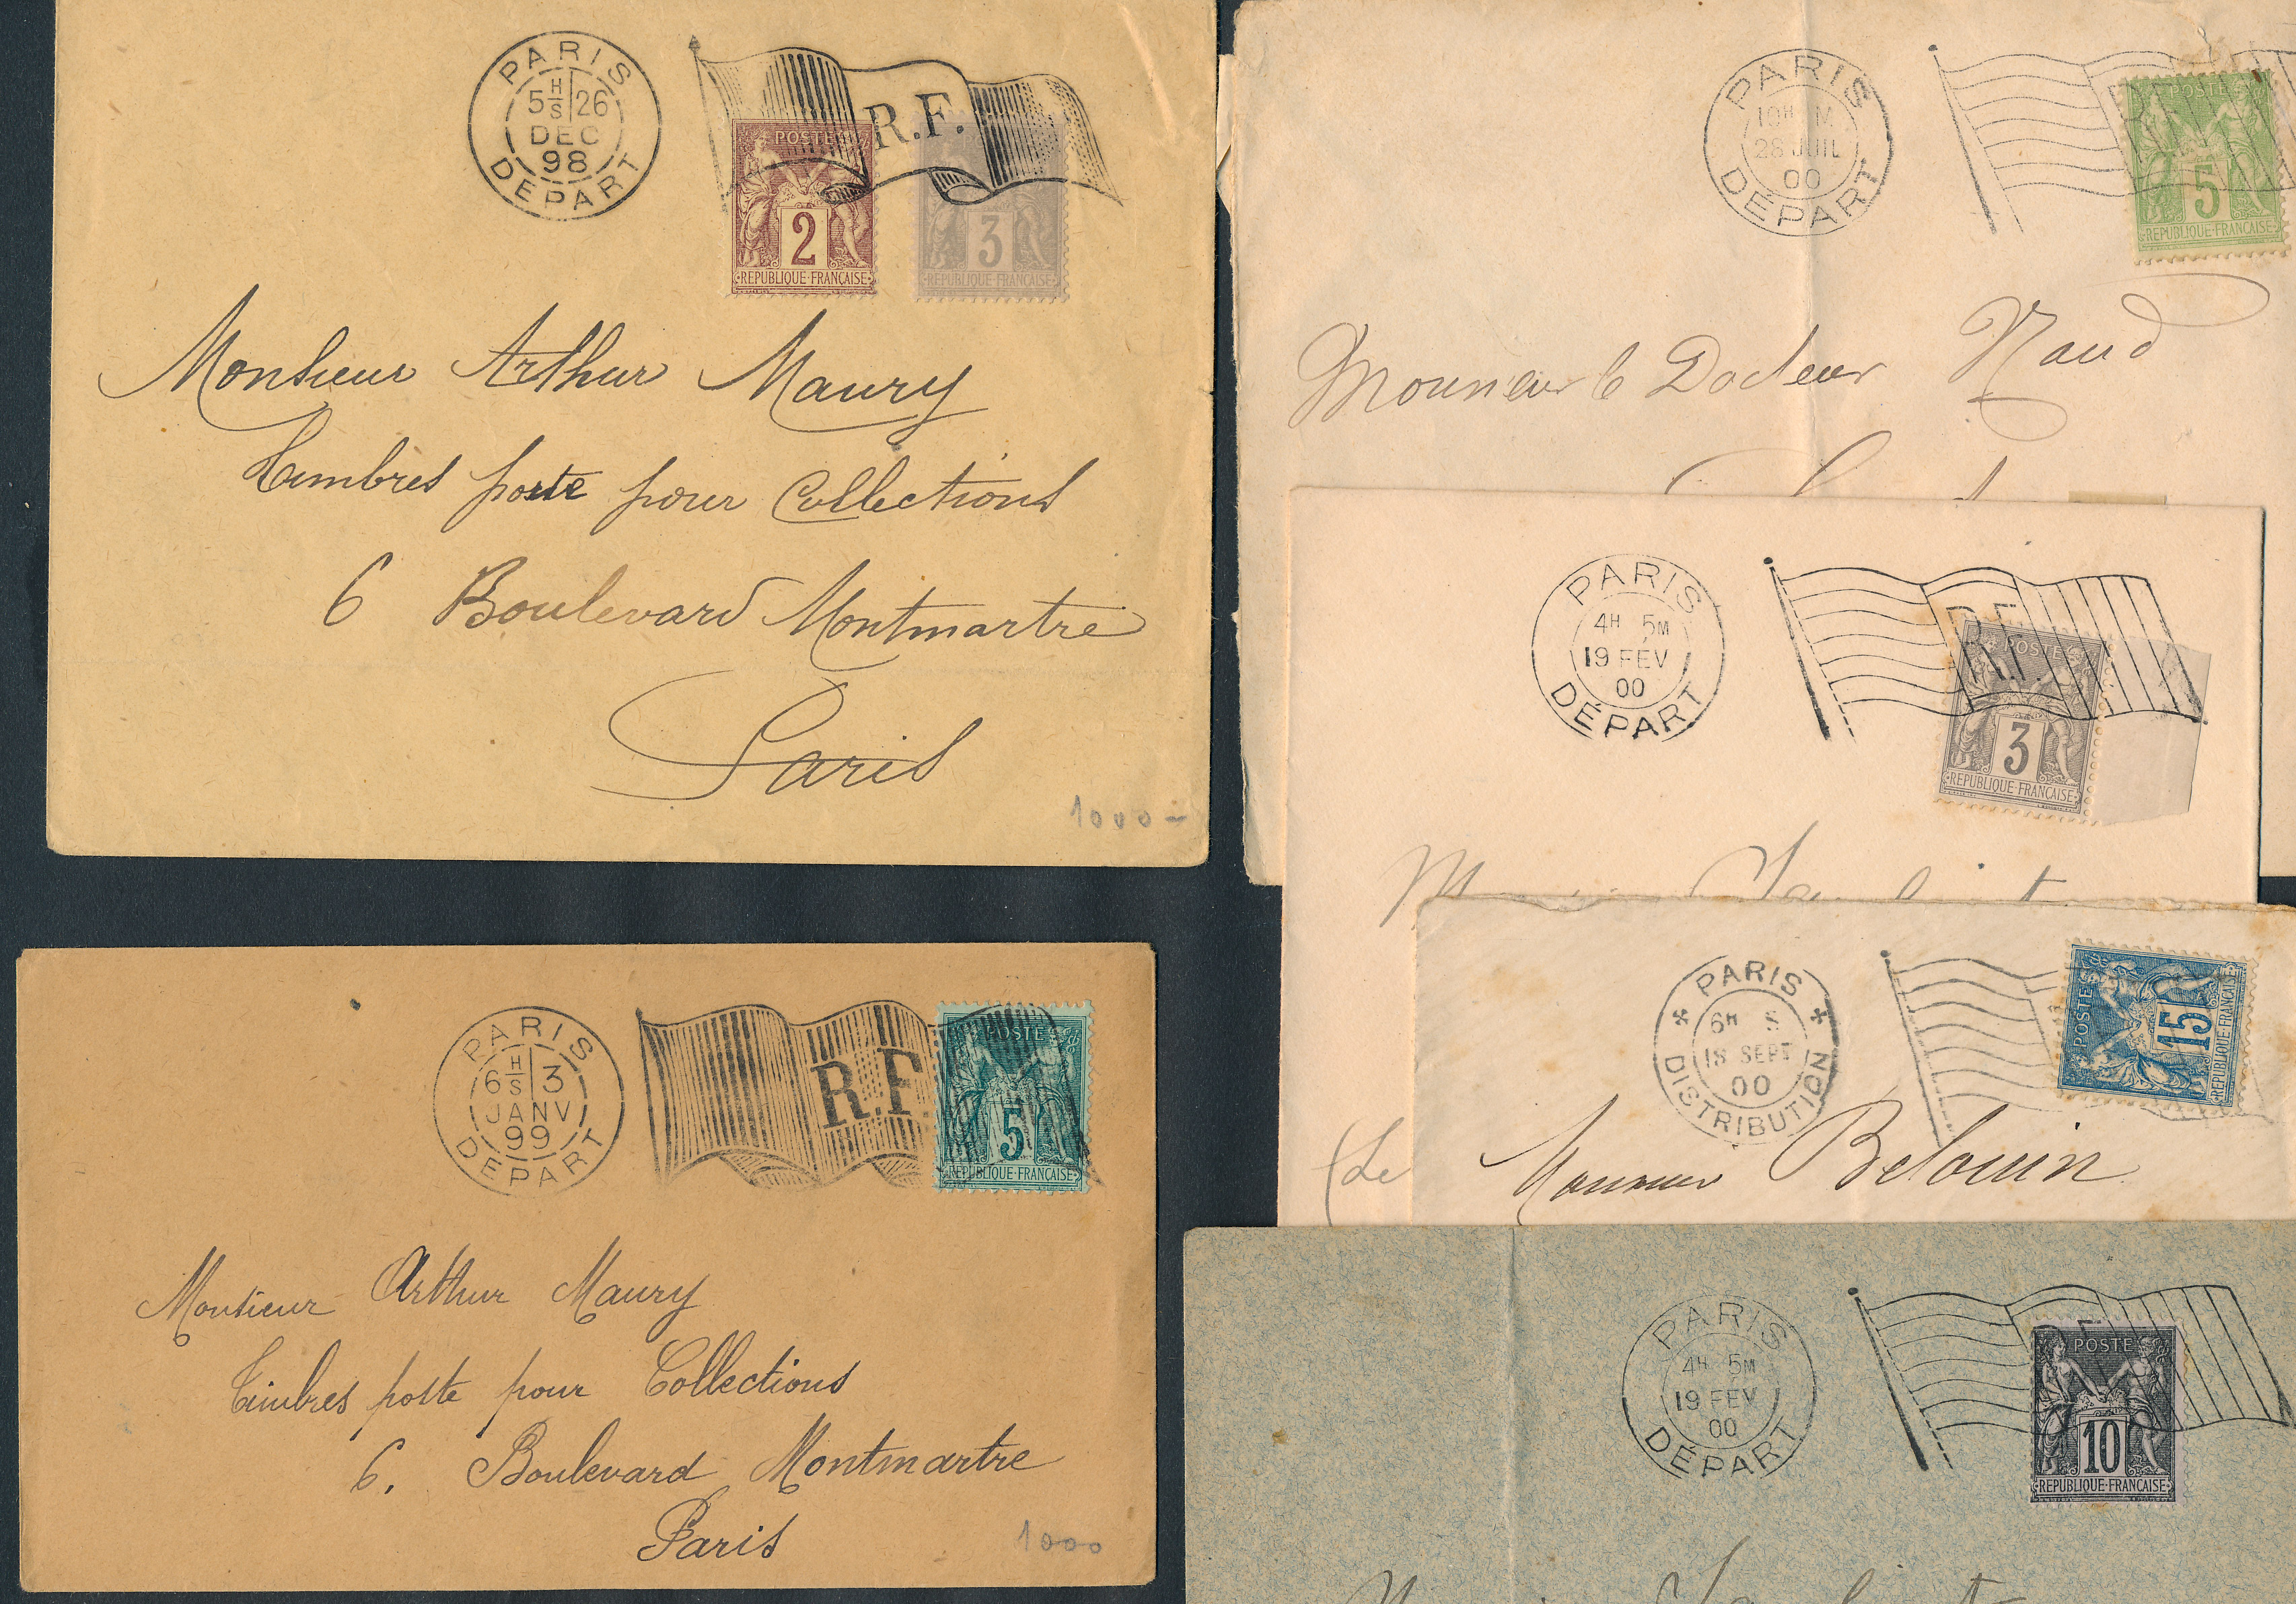 PARIS
5 H S 26
DEC
98
DEPART
R.F.
POSTES
2
REPUBLIQUE·FRANÇAISE
3
REPUBLIQUE·FRANÇAISE
Monsieur Arthur Maury
Timbres poste pour Collections
6 Boulevard Montmartre
Paris
1000-
PARIS
6 H S 3
JANV
99
DEPART
R.F.
POSTES
5
REPUBLIQUE·FRANÇAISE
Monsieur Arthur Maury
Timbres poste pour Collections
6. Boulevard Montmartre
Paris
1000
PARIS
10H M
28 JUIL
00
DÉPART
POSTES
5
REPUBLIQUE·FRANÇAISE
Monsieur le Docteur
PARIS
4H 5M
19 FÉV
00
DÉPART
R.F.
POSTES
3
REPUBLIQUE·FRANÇAISE
PARIS
6H S
18 SEPT
00
DISTRIBUTION
POSTES
15
REPUBLIQUE·FRANÇAISE
(Le
Monsieur Belouin
PARIS
4H 5M
19 FEV
00
DÉPART
R.F.
POSTES
10
REPUBLIQUE·FRANÇAISE